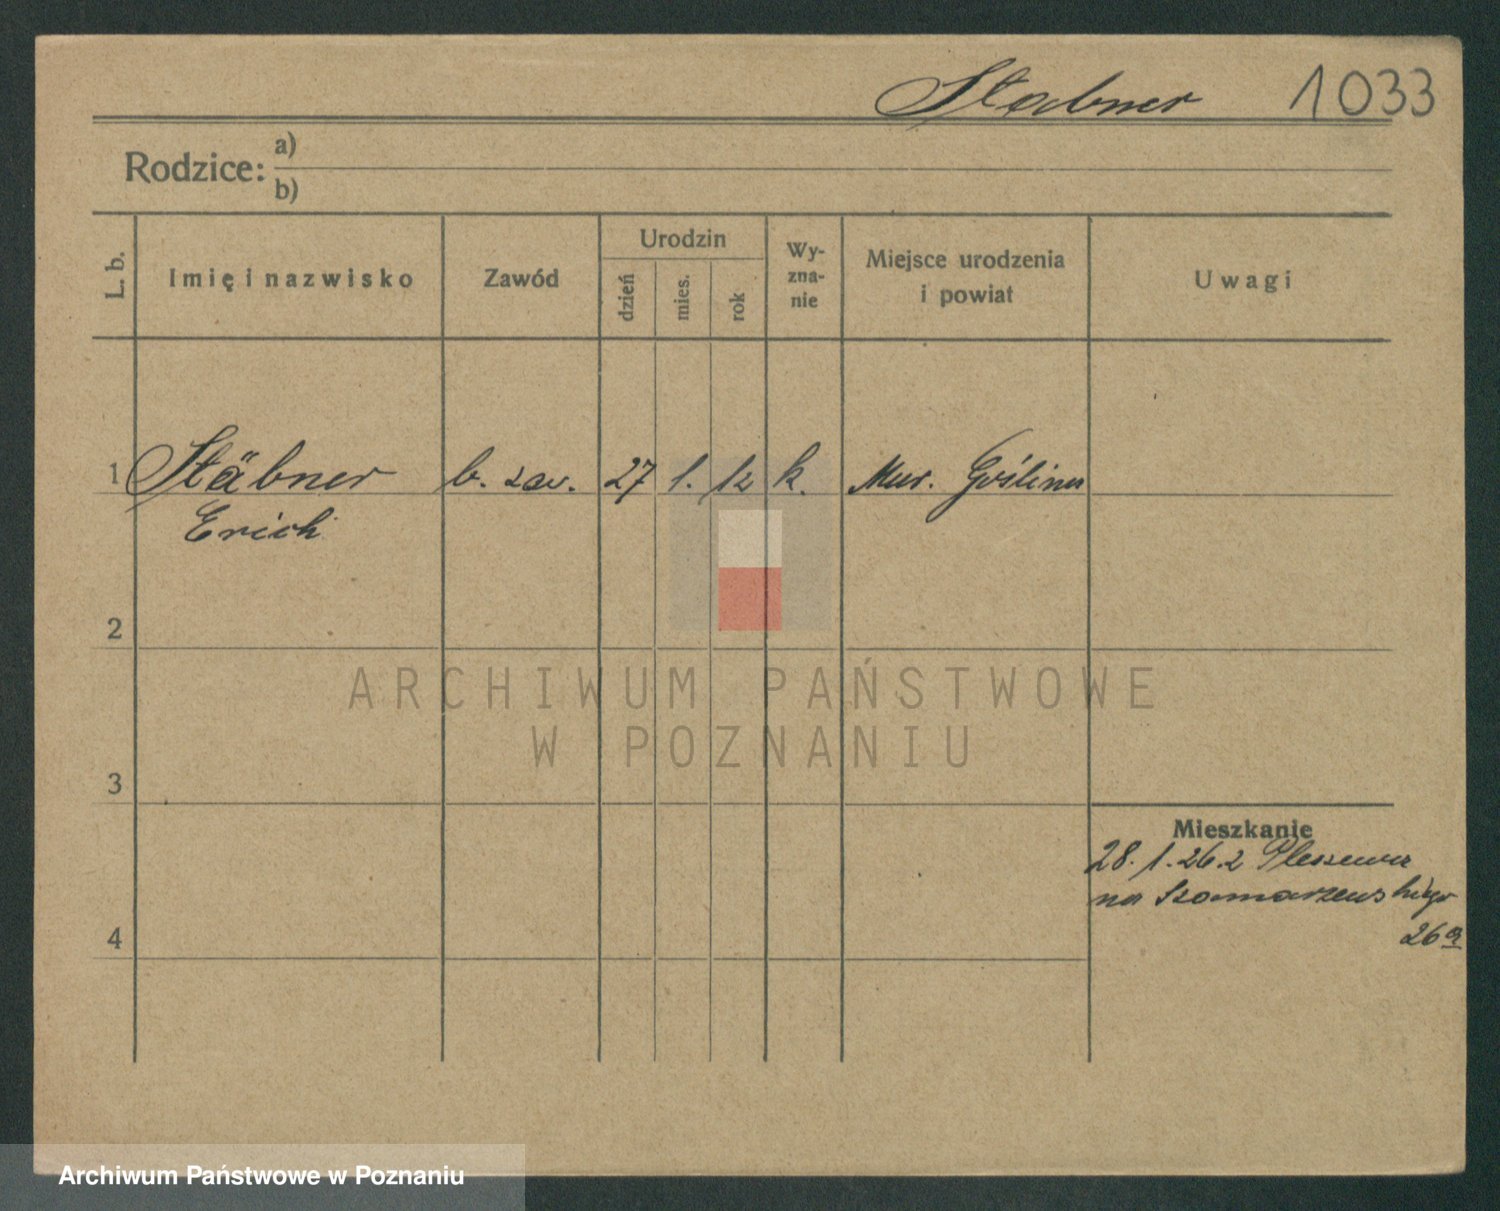 Stabner 1033
Rodzice: a)
b)
L. b. Imię i nazwisko Zawód Urodzin dzień mies. rok Wy-zna-nie Miejsce urodzenia i powiat Uwagi
1 Stäbner b. zaw. 27 1. 12 k. Mur. Goślina
Erich
2
ARCHIWUM PAŃSTWOWE
W POZNANIU
3
Mieszkanie
28. 1. 26. z Pleszewa
na Szamarzewskiego
26a
4
Archiwum Państwowe w Poznaniu